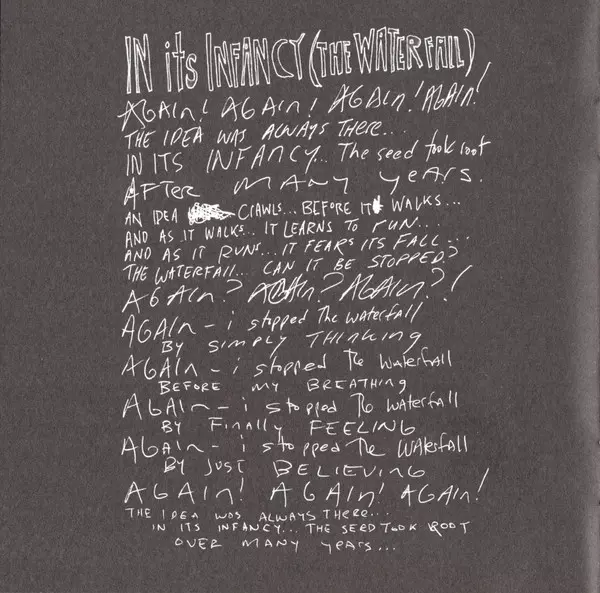 IN its INFANCY (THE WATERFALL)
AGAIN! AGAIN! AGAIN! AGAIN!
THE IDEA WAS ALWAYS THERE...
IN ITS INFANCY... The seed took root
AFTER MANY YEARS.
AN IDEA CRAWLS... BEFORE IT WALKS...
AND AS IT WALKS... IT LEARNS TO RUN...
AND AS IT RUNS... IT FEARS ITS FALL...
THE WATERFALL... CAN IT BE STOPPED?
AGAIN? AGAIN? AGAIN?!
AGAIN - i stopped The waterfall
BY SIMPLY THINKING
AGAIN - i stopped The Waterfall
BEFORE MY BREATHING
AGAIN - i stopped The Waterfall
BY Finally FEELING
AGAIN - i stopped The WAterfall
BY JUST BELIEVING
AGAIN! AGAIN! AGAIN!
THE IDEA WAS ALWAYS THERE...
IN ITS INFANCY... THE SEED TOOK ROOT
OVER MANY YEARS...